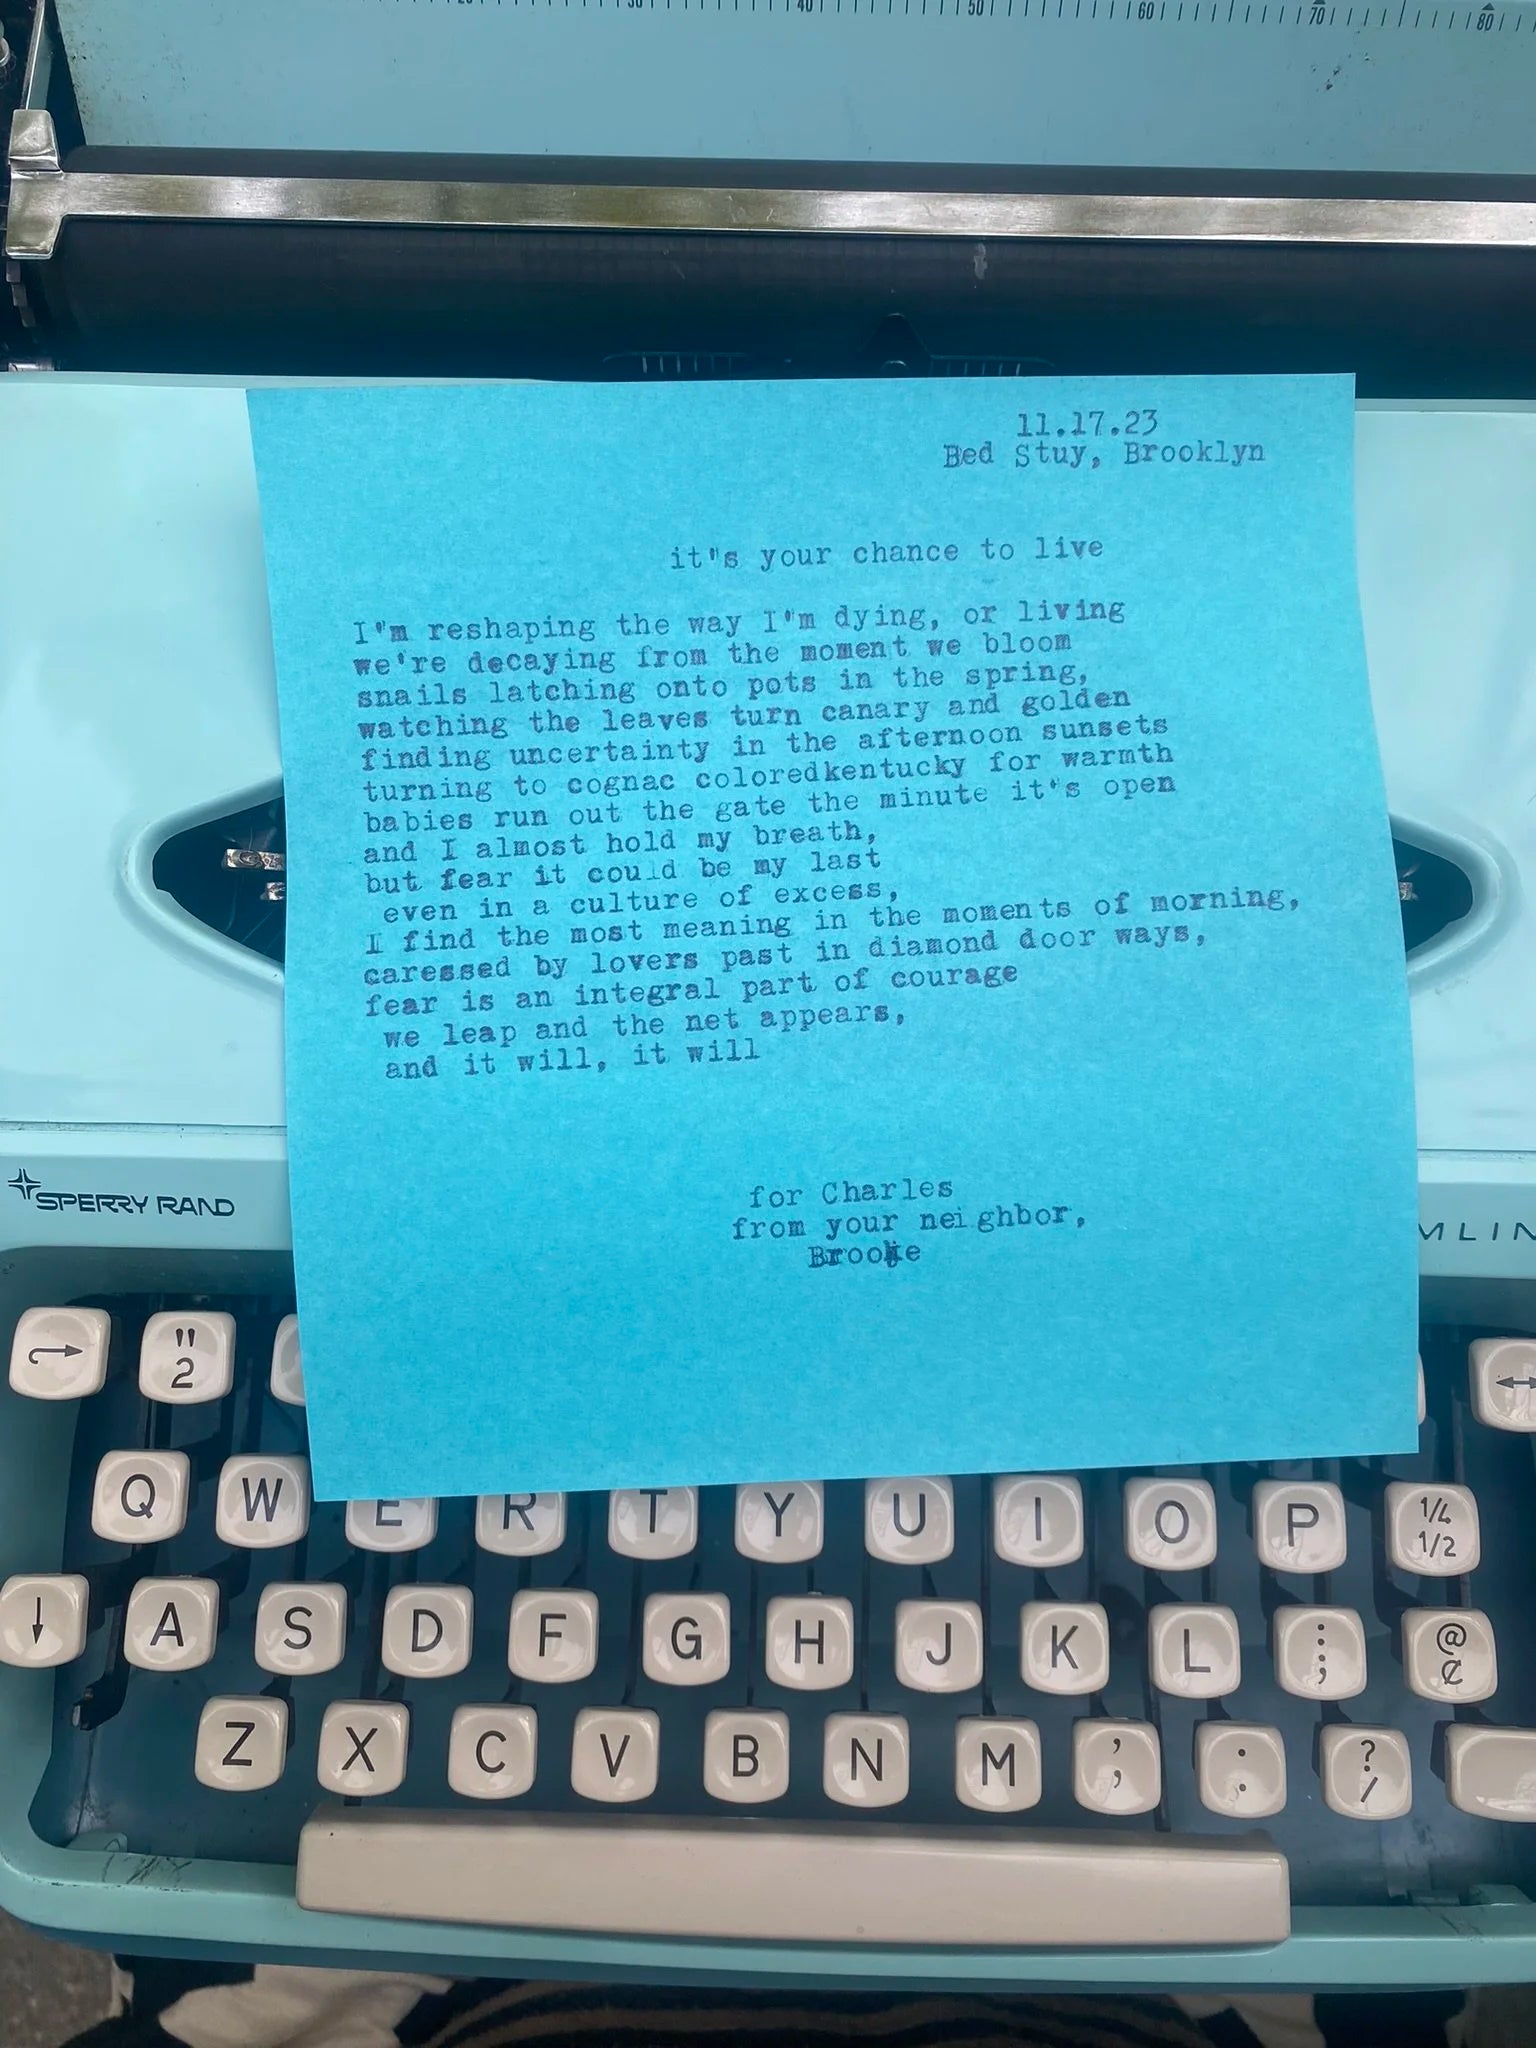 20 30 40 50 60 70 80
11.17.23
Bed Stuy, Brooklyn
it"s your chance to live
I"m reshaping the way I"m dying, or living
we're decaying from the moment we bloom
snails latching onto pots in the spring,
watching the leaves turn canary and golden
finding uncertainty in the afternoon sunsets
turning to cognac coloredkentucky for warmth
babies run out the gate the minute it's open
and I almost hold my breath,
but fear it could be my last
even in a culture of excess,
I find the most meaning in the moments of morning,
caressed by lovers past in diamond door ways,
fear is an integral part of courage
we leap and the net appears,
and it will, it will
for Charles
from your neighbor,
Brooke
SPERRY RAND
MLIN
" 2
Q W E R T Y U I O P 1/4 1/2
A S D F G H J K L : ; @ ¢
Z X C V B N M , , . . ? /